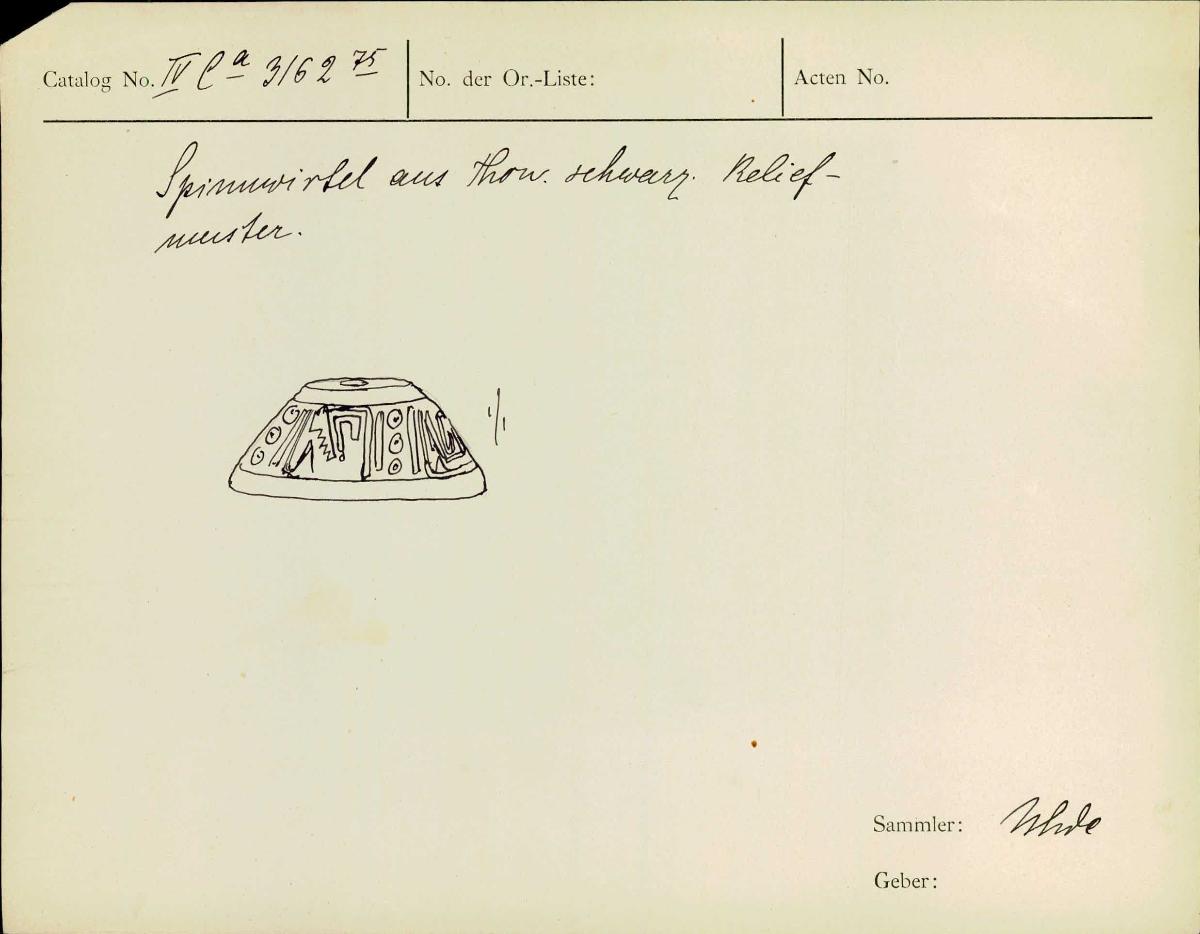 Catalog No. IV Ca 3162 75
No. der Or.-Liste:
Acten No.
Spinnwirtel aus Thon. schwarz. Relief-
muster.
1/1
Sammler: Uhde
Geber: